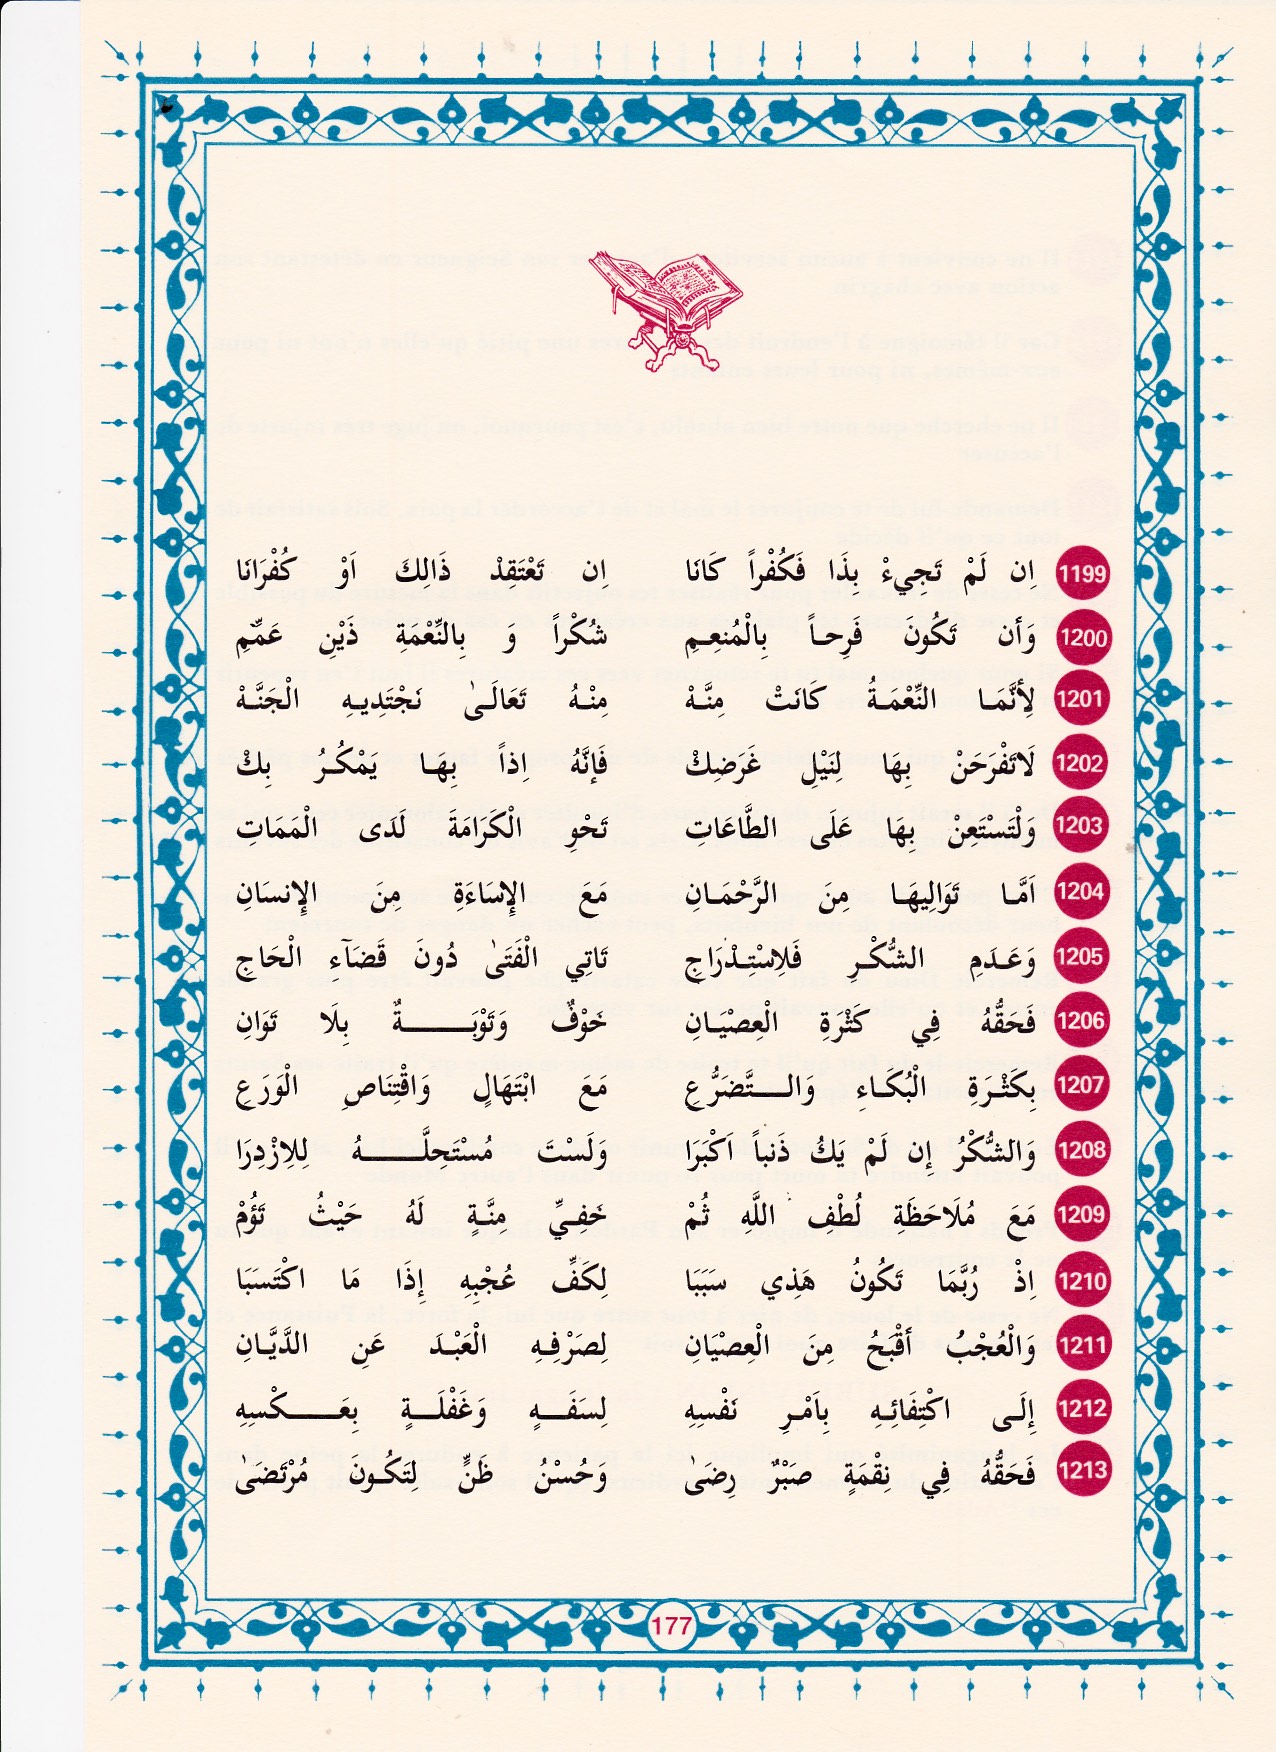 1199 اِن لَمْ تَجِيءْ بِذَا فَكُفْراً كَانَا اِن تَعْتَقِدْ ذَالِكَ اَوْ كُفْرَانَا
1200 وَأن تَكُونَ فَرِحاً بِالْمُنعِمِ شُكْراً وَ بِالنِّعْمَةِ ذَيْنِ عَمِّمِ
1201 لِأَنَّمَا النِّعْمَةُ كَانَتْ مِنَّهْ مِنْهُ تَعَالَىٰ نَجْتَدِيهِ الْجَنَّهْ
1202 لَاتَفْرَحَنْ بِهَا لِنَيْلِ غَرَضِكْ فَإنَّهُ اِذاً بِهَا يَمْكُرُ بِكْ
1203 وَلْتَسْتَعِنْ بِهَا عَلَى الطَّاعَاتِ تَحْوِ الْكَرَامَةَ لَدَى الْمَمَاتِ
1204 اَمَّا تَوَالِيهَا مِنَ الرَّحْمَانِ مَعَ الإِسَاءَةِ مِنَ الإِنسَانِ
1205 وَعَدَمِ الشُّكْرِ فَلِاسْتِدْرَاجِ تَاتِي الْفَتَىٰ دُونَ قَضَآءِ الْحَاجِ
1206 فَحَقُّهُ فِي كَثْرَةِ الْعِصْيَانِ خَوْفٌ وَتَوْبَةٌ بِلَا تَوَانِ
1207 بِكَثْرَةِ الْبُكَاءِ وَالتَّضَرُّعِ مَعَ ابْتَهَالٍ وَاقْتِنَاصِ الْوَرَعِ
1208 وَالشُّكْرُ إِن لَمْ يَكُ ذَنباً اَكْبَرَا وَلَسْتَ مُسْتَحِلَّهُ لِلِازْدِرَا
1209 مَعَ مُلَاحَظَةِ لُطْفِ اللَّهِ ثُمْ خَفِيِّ مِنَّةٍ لَهُ حَيْثُ تَؤُمْ
1210 اِذْ رُبَّمَا تَكُونُ هَذِي سَبَبَا لِكَفِّ عُجْبِهِ إِذَا مَا اكْتَسَبَا
1211 وَالْعُجْبُ أقْبَحُ مِنَ الْعِصْيَانِ لِصَرْفِهِ الْعَبْدَ عَنِ الدَّيَّانِ
1212 إِلَى اكْتِفَائِهِ بِاَمْرِ نَفْسِهِ لِسَفَهٍ وَغَفْلَةٍ بِعَكْسِهِ
1213 فَحَقُّهُ فِي نِقْمَةٍ صَبْرٌ رِضَىٰ وَحُسْنُ ظَنٍّ لِتَكُونَ مُرْتَضَىٰ
177